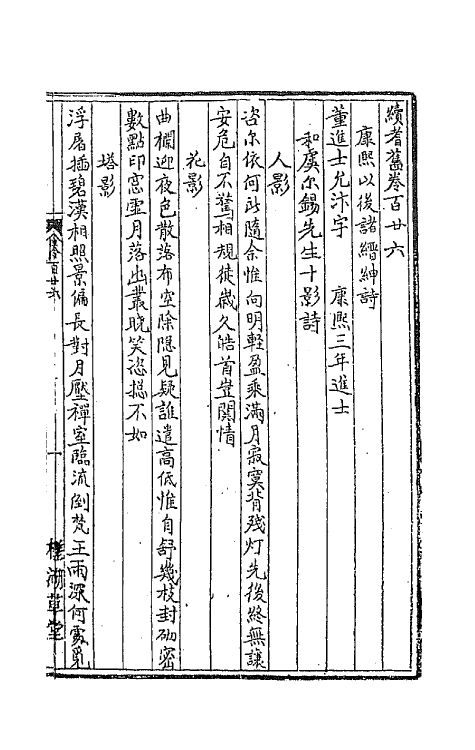 續耆舊卷百廿六
康熙以後諸縉紳詩
董進士允汴字 康熙三年進士
和虞尔錫先生十影詩
人影
咨尔依何此隨余惟向明輕盈乘滿月寂寞背殘灯先後終無讓
安危自不驚相規徒歲久皓首豈関情
花影
曲欄迎夜色散落布空除隱見疑誰遣高低惟自舒幾枝封砌密
數點印窓虛月落幽叢晓笑恣揔不如
塔影
浮屠插碧漢相照景偏長對月壓禪室臨流倒梵王雨深何處覓
卷百廿六
一
槎湖草堂